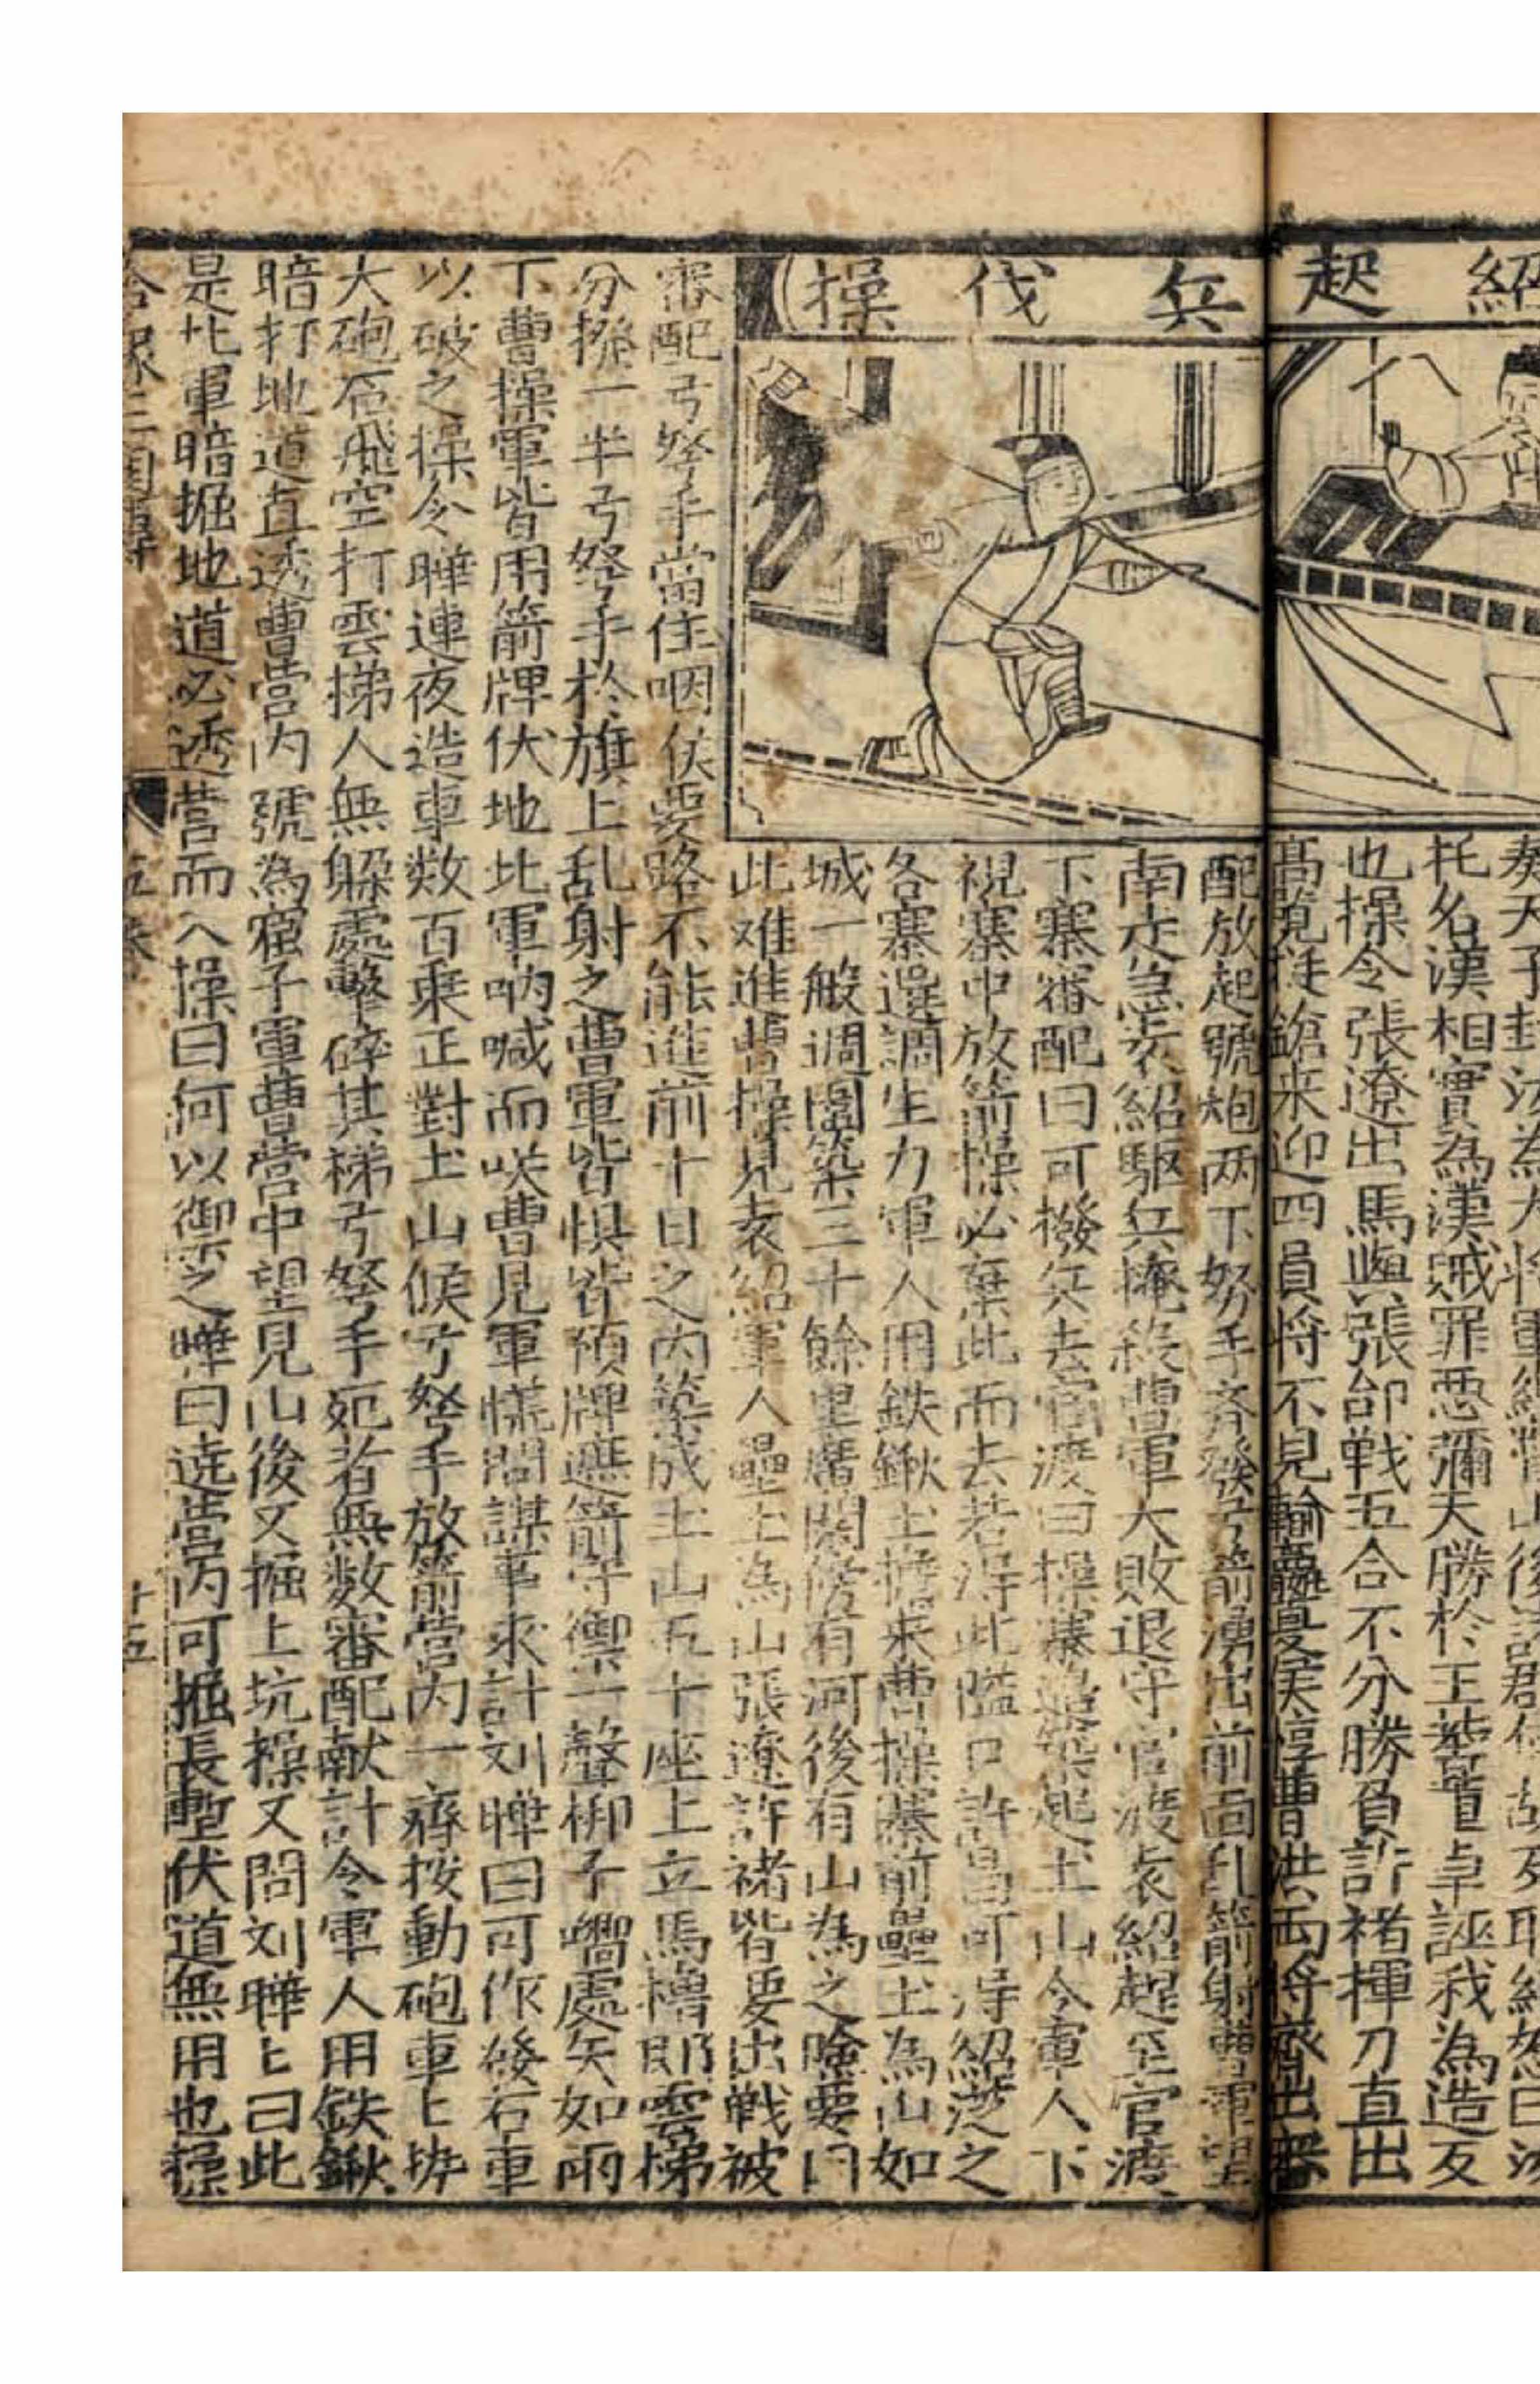 紹起兵伐操
托名漢相實為漢賊罪惡彌天勝於王莽董卓誣我為造反
也操令張遼出馬與張郃戦五合不分勝負許褚揮刀直出
高覧挺鎗来迎四員将不見輸贏夏侯惇曹洪両将齊出審
配放起號炮两下弩手齐發弓箭湧出前面乱箭射曹軍望
南走急袁紹駆兵掩殺曹軍大敗退守官渡袁紹趕至官渡
下寨審配曰可撥兵去官渡曰操寨邉築起土山今軍人下
視寨中放箭操必棄此而去若淂此隘口許昌可淂紹従之
各寨選調生力軍人用鉄鍬土擔来曹操寨前壘土為山如
城一般週圍築三十餘里廣闊傍有河後有山為之險要曰
此难進曹操見袁紹軍人壘土為山張遼許褚皆要出戦被
審配弓弩手當住咽侯要路不能進前十日之内築成土山五十座上立馬櫓即雲梯
分撥一半弓弩手於旗上乱射之曹軍皆惧皆預牌遮箭守禦一聲梆子嚮處矢如雨
下曹操軍皆用箭牌伏地北軍吶喊而咲曹見軍慌問謀事求計刘曄曰可作發石車
以破之操令曄連夜造車数百乘正對土山候弓弩手放箭營内一齊按動砲車上拽
大砲石飛空打雲梯人無躲處擊碎其梯弓弩手死者無数審配献計令軍人用鉄鍬
暗打地道直透曹营内號為窟子軍曹营中望見山後又掘土坑操又問刘曄上曰此
是北軍暗掘地道必透营而入操曰何以禦之曄曰遶营内可掘長塹伏道無用也操
五卷
十五